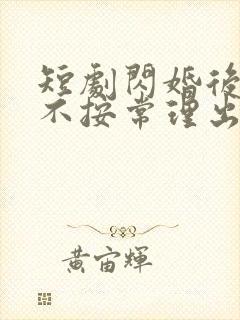 短劇閃婚後
不按常理出
黃宙輝